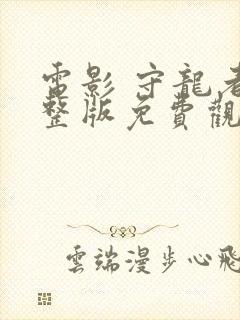 電影 守龍者
整版免費觀
雲端漫步心飛